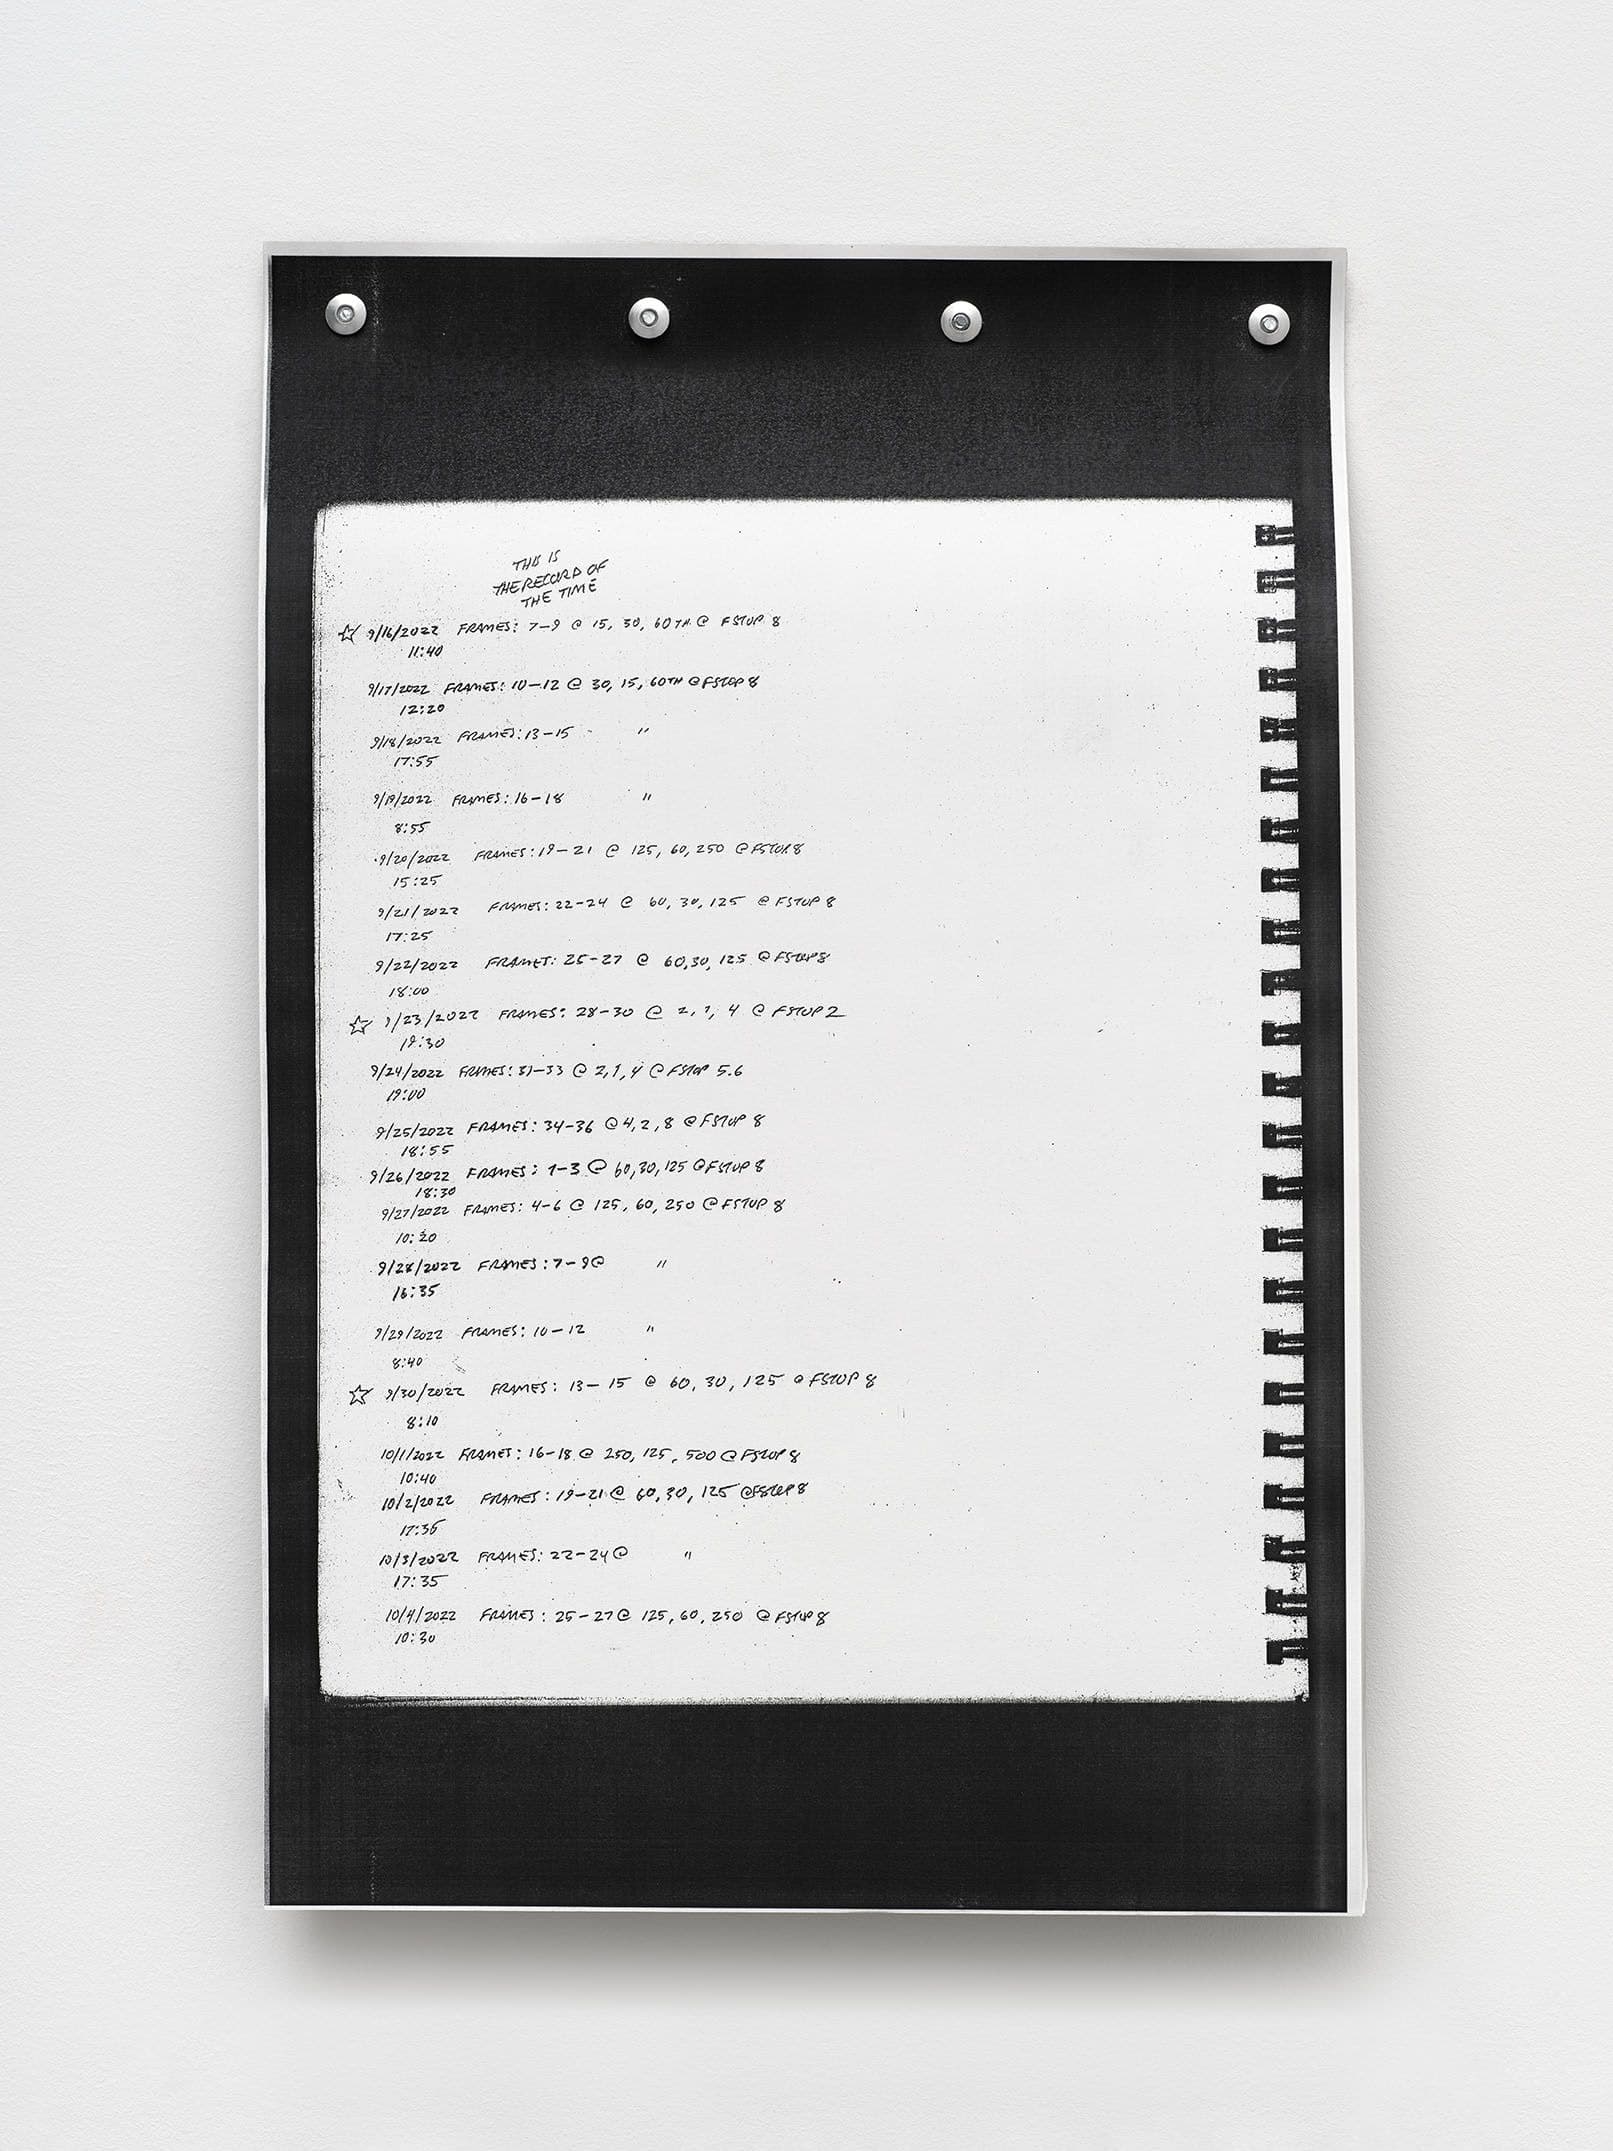 THIS IS
THE RECORD OF
THE TIME
☆ 9/16/2022 FRAMES: 7-9 @ 15, 30, 60TH @ FSTOP 8
11:40
9/17/2022 FRAMES: 10-12 @ 30, 15, 60TH @ FSTOP 8
12:20
9/18/2022 FRAMES: 13-15 "
17:55
9/19/2022 FRAMES: 16-18 "
8:55
9/20/2022 FRAMES: 19-21 @ 125, 60, 250 @ FSTOP 8
15:25
9/21/2022 FRAMES: 22-24 @ 60, 30, 125 @ FSTOP 8
17:25
9/22/2022 FRAMES: 25-27 @ 60, 30, 125 @ FSTOP 8
18:00
☆ 9/23/2022 FRAMES: 28-30 @ 2, 1, 4 @ FSTOP 2
19:30
9/24/2022 FRAMES: 31-33 @ 2, 1, 4 @ FSTOP 5.6
19:00
9/25/2022 FRAMES: 34-36 @ 4, 2, 8 @ FSTOP 8
18:55
9/26/2022 FRAMES: 1-3 @ 60, 30, 125 @ FSTOP 8
18:30
9/27/2022 FRAMES: 4-6 @ 125, 60, 250 @ FSTOP 8
10:20
9/28/2022 FRAMES: 7-9 @ "
16:35
9/29/2022 FRAMES: 10-12 "
8:40
☆ 9/30/2022 FRAMES: 13-15 @ 60, 30, 125 @ FSTOP 8
8:10
10/1/2022 FRAMES: 16-18 @ 250, 125, 500 @ FSTOP 8
10:40
10/2/2022 FRAMES: 19-21 @ 60, 30, 125 @ FSTOP 8
17:36
10/3/2022 FRAMES: 22-24 @ "
17:35
10/4/2022 FRAMES: 25-27 @ 125, 60, 250 @ FSTOP 8
10:30